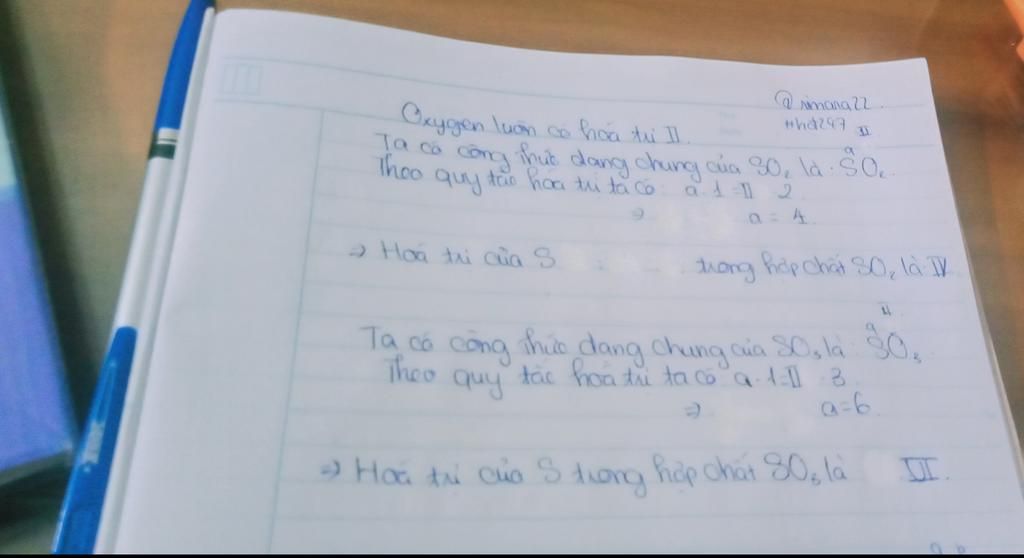 @rimana22
#hd247
Oxygen luôn có hoá trị II.
Ta có công thức dạng chung của SO₂ là: S^aO₂^II
Theo quy tắc hóa trị ta có: a.1=II 2
⇒ a = 4
⇒ Hoá trị của S trong hợp chất SO₂ là IV
Ta có công thức dạng chung của SO₃ là: S^aO₃^II
Theo quy tắc hoá trị ta có a.1=II 3
⇒ a=6
⇒ Hoá trị của S trong hợp chất SO₃ là